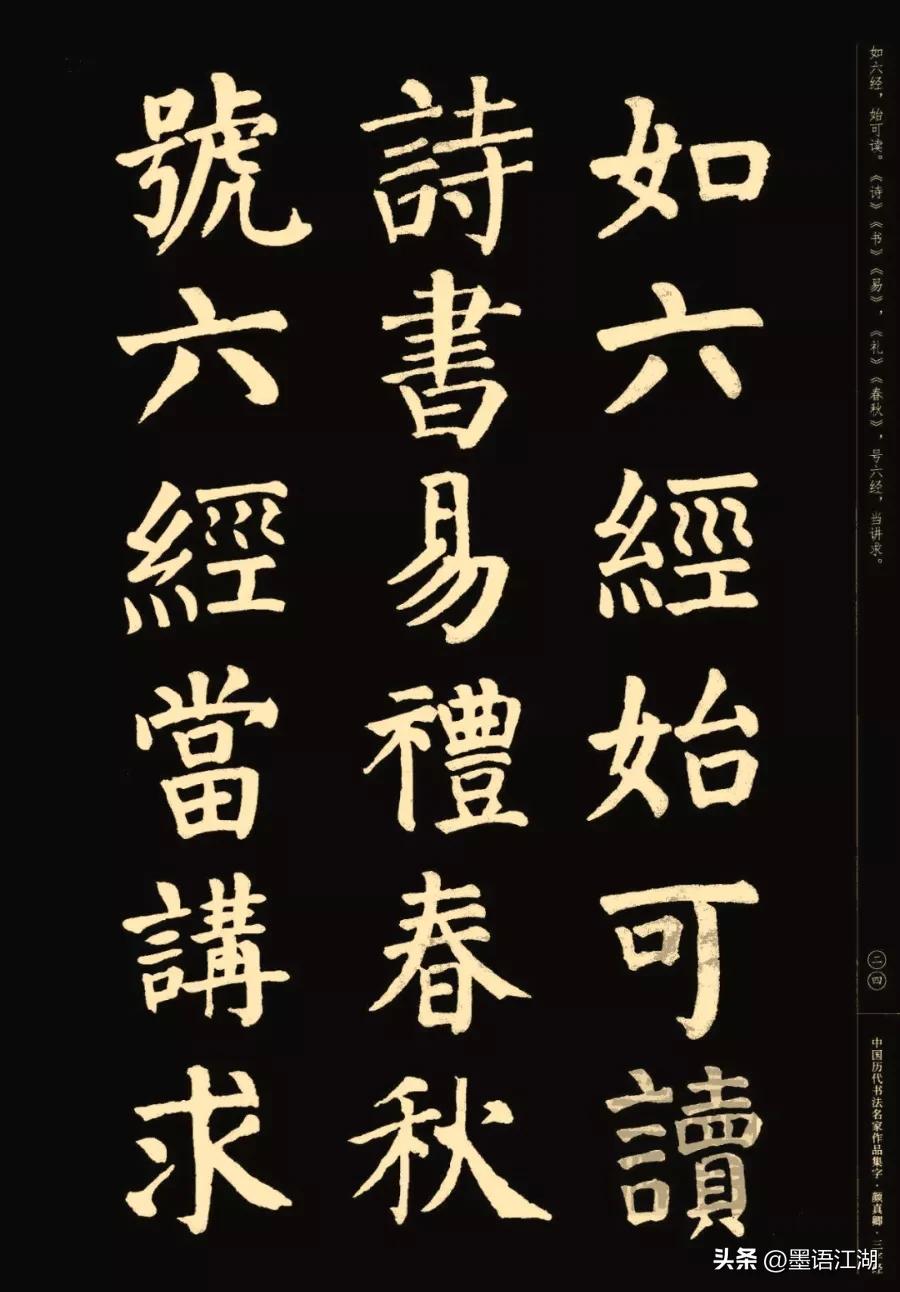 如六經始可讀
詩書易禮春秋
號六經當講求
如六经，始可读。《诗》《书》《易》，《礼》《春秋》，号六经，当讲求。
二四
中国历代书法名家作品集字·颜真卿·三字经
头条 @墨语江湖